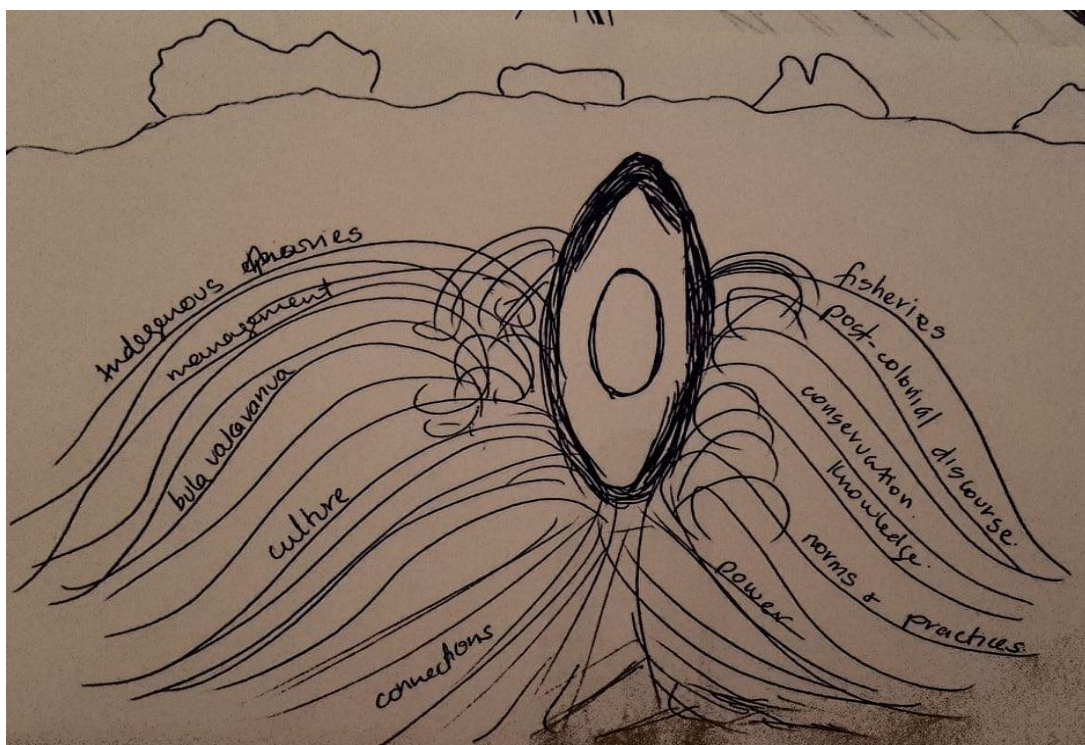 Indegenous
management
bula vakavanua
culture
connections
fisheries
post-colonial discourse.
conservation.
knowledge.
norms & practices.
power